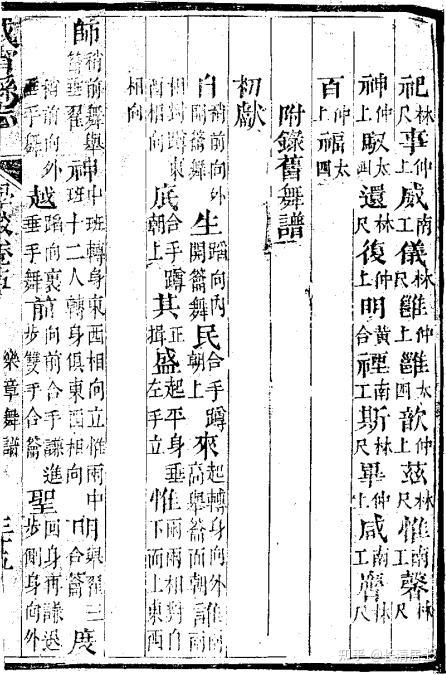 祀林尺事仲上威南工儀林尺雝仲上雝太四歆仲上茲林尺惟南工馨林尺
神仲上馭太四還林尺復仲上明黃合禋南工斯林尺畢仲上咸南工膺林尺
百仲上福太四
附錄舊舞譜
初獻
自稍前向外開籥舞生蹈向內開籥舞民合手蹲朝上來起轉身向外高舉籥面朝
相對蹲東西相向底合手蹲朝上其正揖盛起平身垂左手立惟兩兩相對自下而上東西
相向
師稍前舞舉垂翟神中班轉身東西相向立惟兩中班十二人轉身俱東西相向明舉翟三合籥度
稍前向外垂手舞越蹈向裏垂手舞前向前合手謙進步雙手合籥聖回身再謙退步側身向外
樂章舞譜